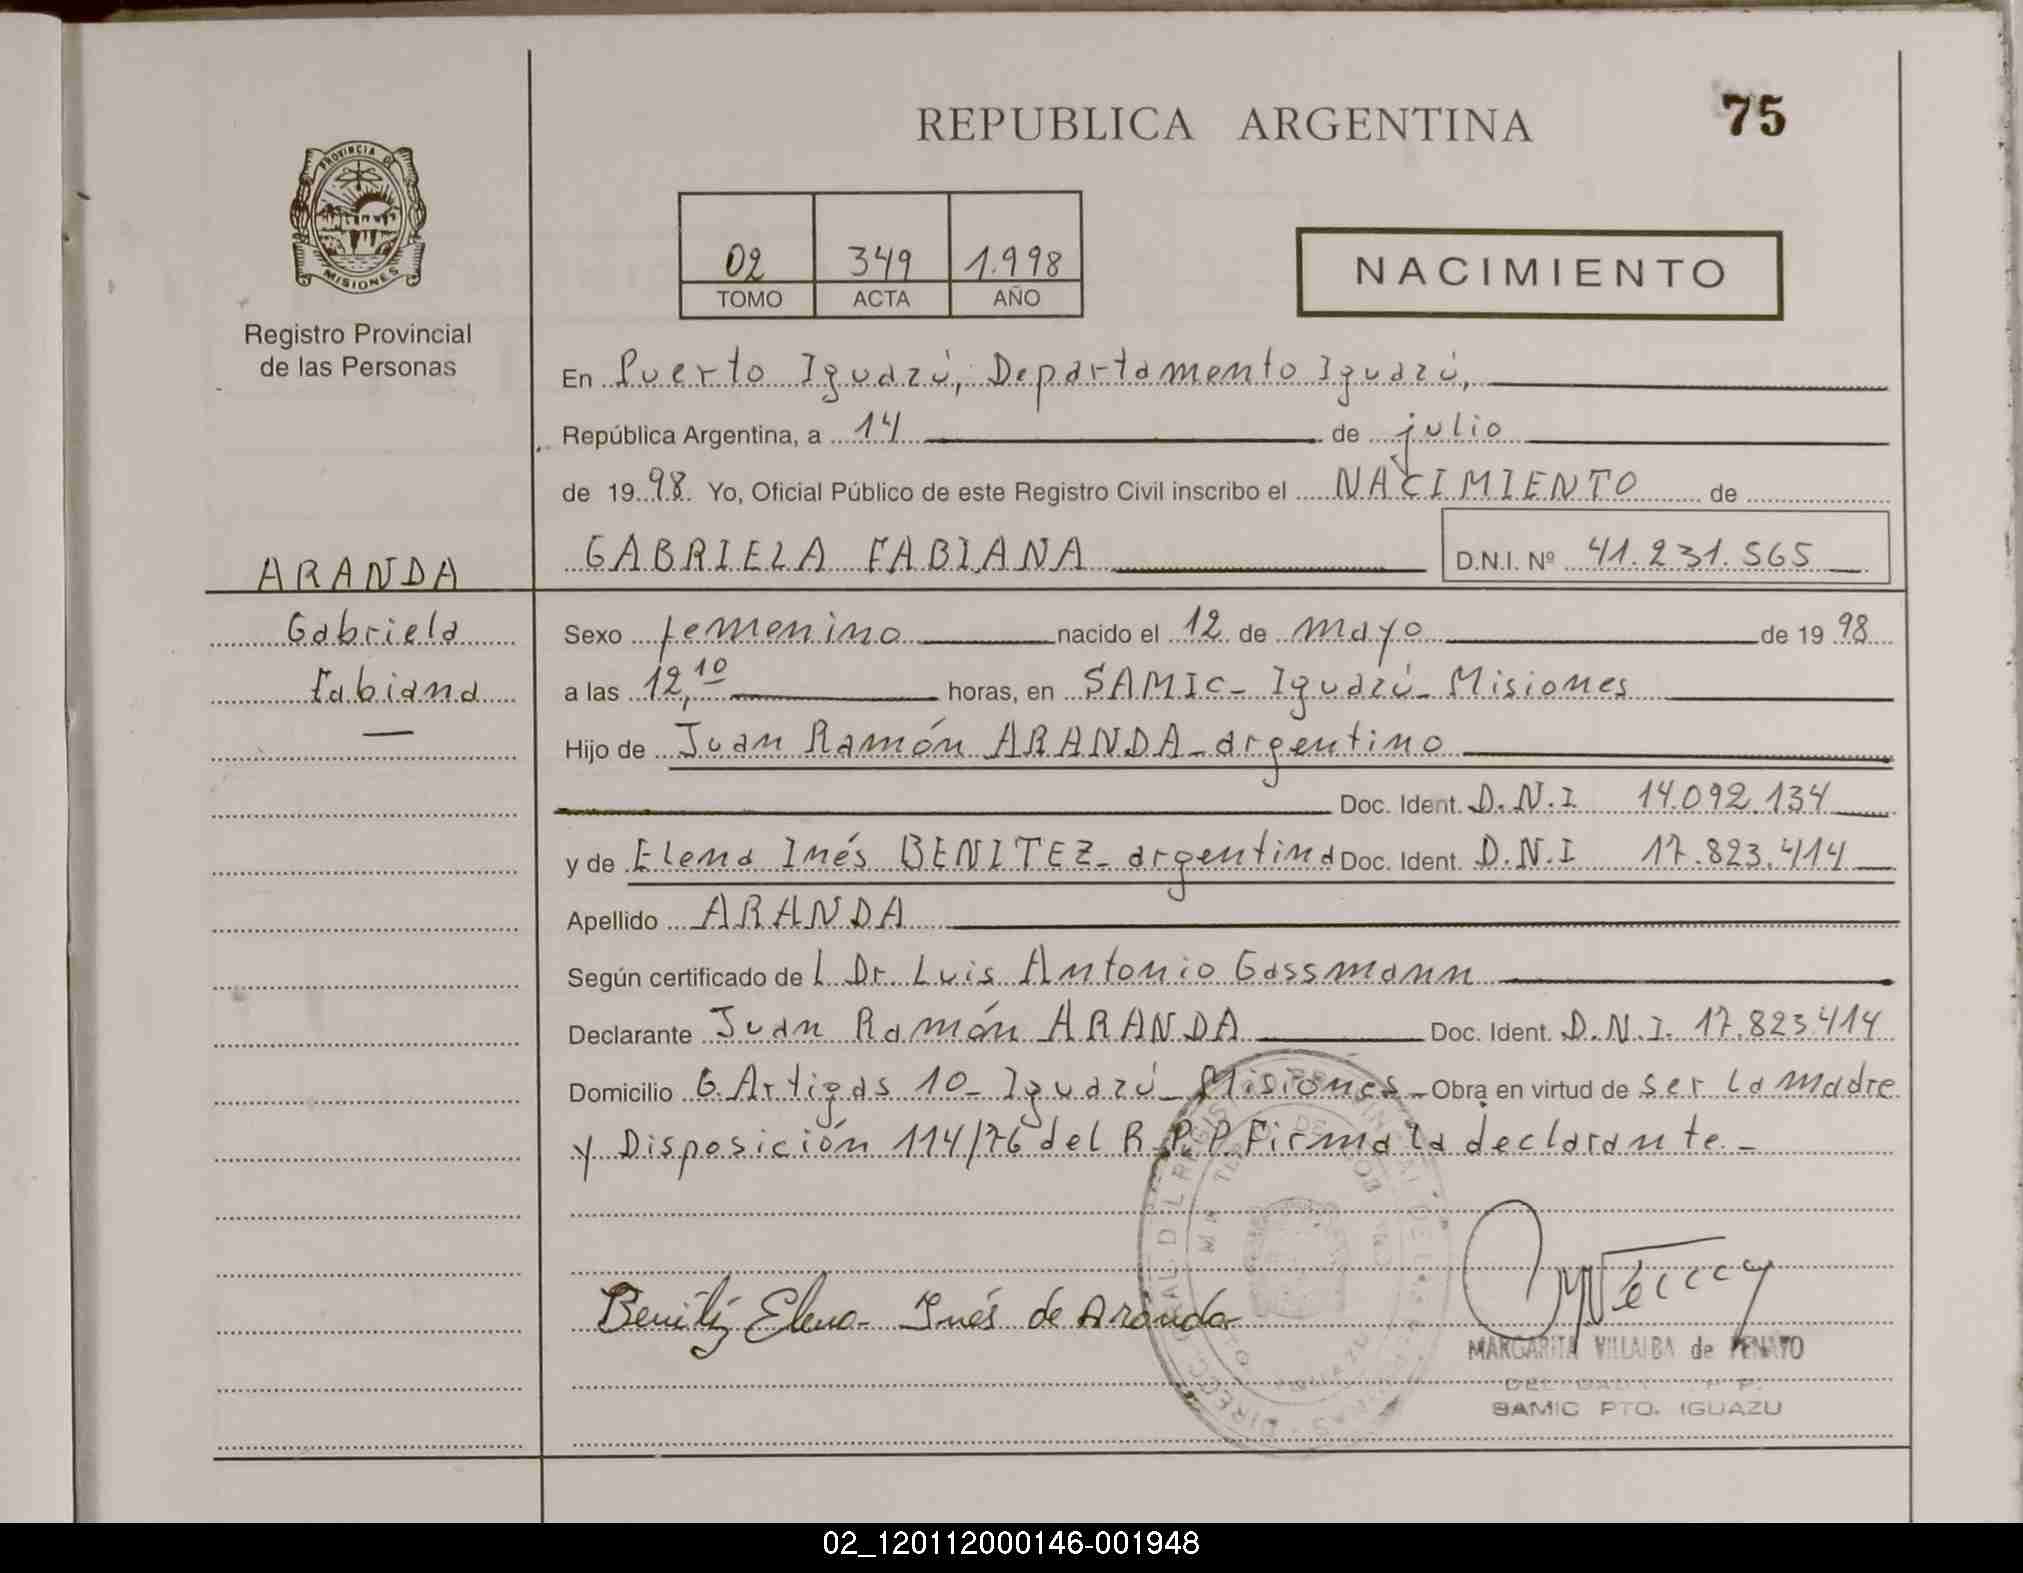 REPUBLICA ARGENTINA
75
PROVINCIA DE
MISIONES
Registro Provincial
de las Personas
02 349 1.998
TOMO ACTA AÑO
NACIMIENTO
En Puerto Iguazú, Departamento Iguazú,
República Argentina, a 14 de julio
de 1998 Yo, Oficial Público de este Registro Civil inscribo el NACIMIENTO de
GABRIELA FABIANA D.N.I. Nº 41.231.565
ARANDA
Gabriela
Fabiana
Sexo femenino nacido el 12 de mayo de 1998
a las 12,10 horas, en SAMIC - Iguazú - Misiones
Hijo de Juan Ramón ARANDA - argentino
Doc. Ident. D.N.I 14.092.134
y de Elena Inés BENITEZ - argentina Doc. Ident. D.N.I 17.823.414
Apellido ARANDA
Según certificado de L Dr. Luis Antonio Gassmann
Declarante Juan Ramón ARANDA Doc. Ident. D.N.I. 17.823.414
Domicilio G. Artigas 10 - Iguazú - Misiones - Obra en virtud de ser la madre
y Disposición 114/76 del R.P.P. Firma la declarante. -
Benitez Elena Inés de Aranda
MARGARITA VILLALBA de PENAYO
SAMIC PTO. IGUAZU
02_120112000146-001948